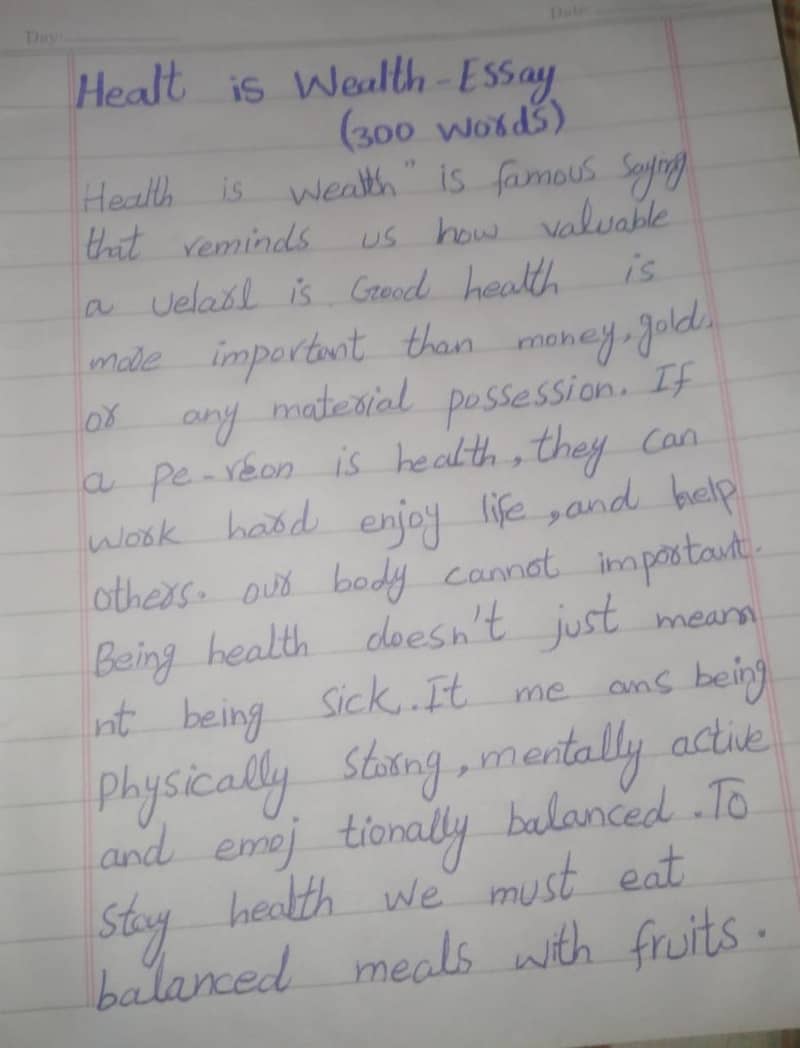 Day:
Date:
Healt is Wealth-Essay
(300 words)
Health is wealth" is famous Saying
that reminds us how valuable
a velarl is Good health is
more important than money, gold,
or any material possession. If
a pe-rson is health, they can
work hard enjoy life, and help
others. our body cannot important.
Being health doesn't just mean
nt being sick. It me ans being
physically strorng, mentally active
and emoj tionally balanced. To
stay health we must eat
balanced meals with fruits.